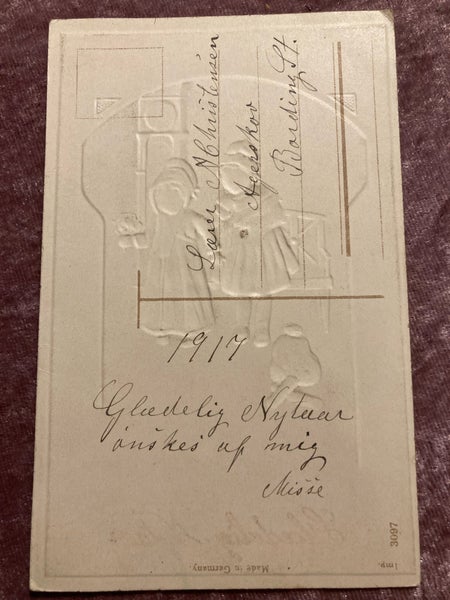 Lærer A Christensen
Agerskov
Bording St.
1917
Glædelig Nytaar
ønskes af mig
Misse
3097
Imp.
Made in Germany.